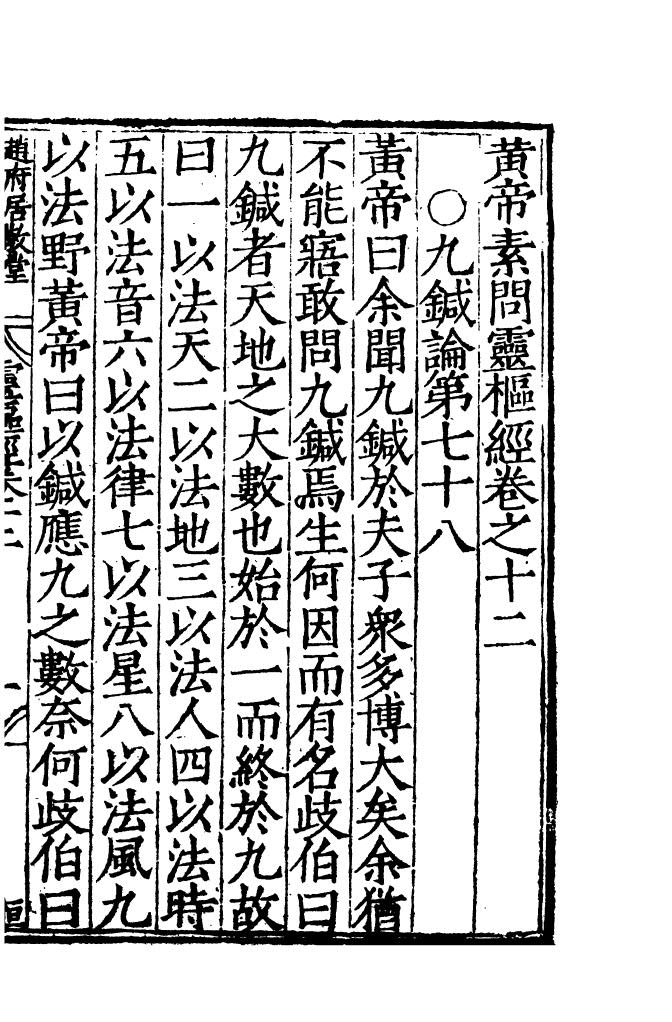 黄帝素問靈樞經卷之十二
○九鍼論第七十八
黃帝曰余聞九鍼於夫子衆多博大矣余猶
不能寤敢問九鍼焉生何因而有名歧伯曰
九鍼者天地之大數也始於一而終於九故
曰一以法天二以法地三以法人四以法時
五以法音六以法律七以法星八以法風九
以法野黃帝曰以鍼應九之數奈何歧伯曰
趙府居敬堂